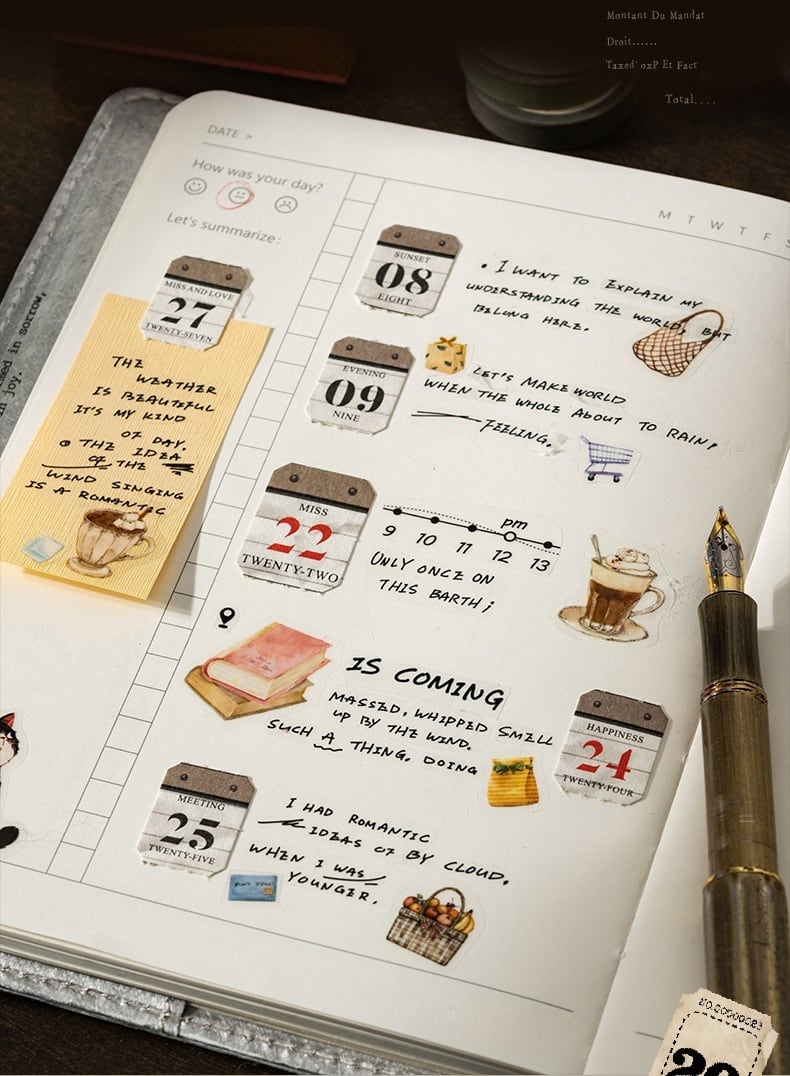 Montant Du Mandat
Droit......
Taxed' oxP Et Fact
Total....
DATE >
How was your day?
Let's summarize:
M T W T F S
MISS AND LOVE
27
TWENTY-SEVEN
THE
WEATHER
IS BEAUTIFUL
IT'S MY KIND
OF DAY.
THE IDEA
OF THE
WIND SINGING
IS A ROMANTIC
in sorrow,
in joy.
SUNSET
08
EIGHT
• I WANT TO EXPLAIN MY
UNDERSTANDING THE WORLD, BUT
BELONG HERE.
EVENING
09
NINE
LET'S MAKE WORLD
WHEN THE WHOLE ABOUT TO RAIN,
FEELING.
MISS
22
TWENTY-TWO
pm
9 10 11 12 13
ONLY ONCE ON
THIS BARTH;
IS COMING
MASSED, WHIPPED SMELL
UP BY THE WIND.
SUCH A THING. DOING
HAPPINESS
24
TWENTY-FOUR
MEETING
25
TWENTY-FIVE
I HAD ROMANTIC
IDEAS OF BY CLOUD.
WHEN I WAS
YOUNGER.